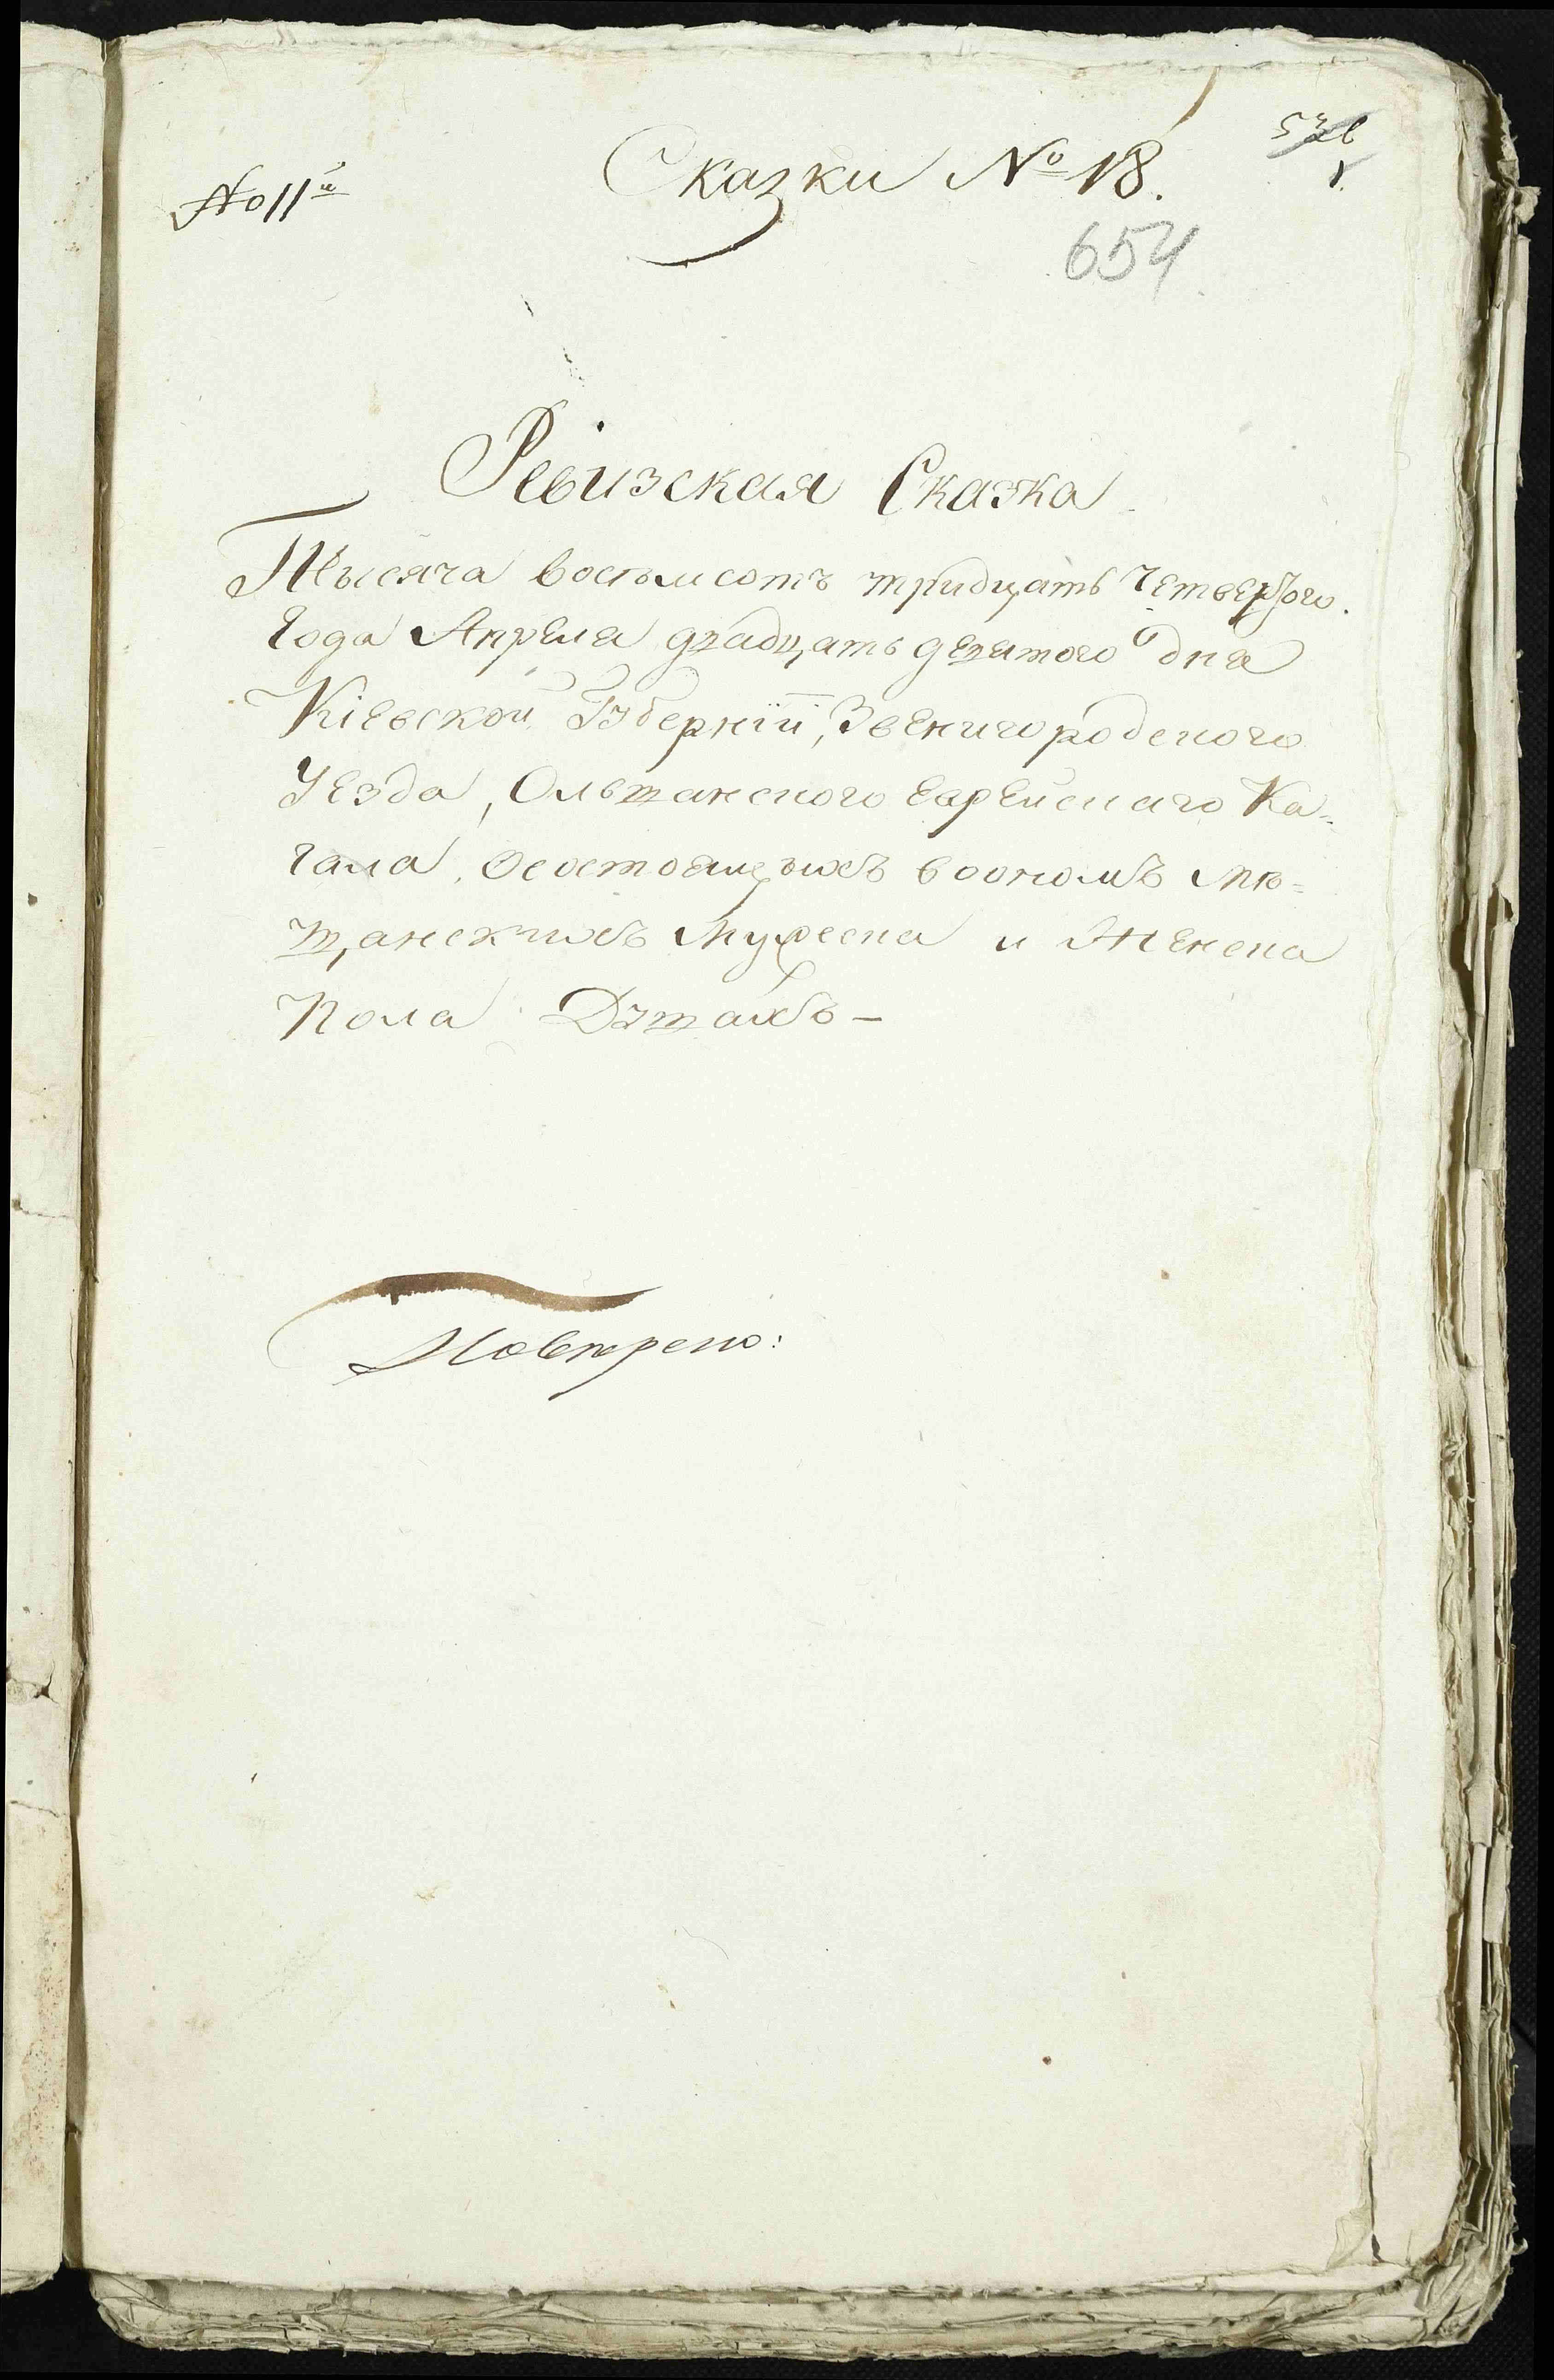 Сказки № 18.
654
1
Ревизская Сказка
Тысяча восемсотъ тридцать четвертого
Года Апреля двадцать девятого дня
Кіевской Губерніи, Звенигородского
Уезда, Ольшанского еврейскаго Ка=
гала, О состоящихъ во ономъ Мѣ=
щанскихъ Мужеска и Женска
Пола Душахъ —
Повѣрено: